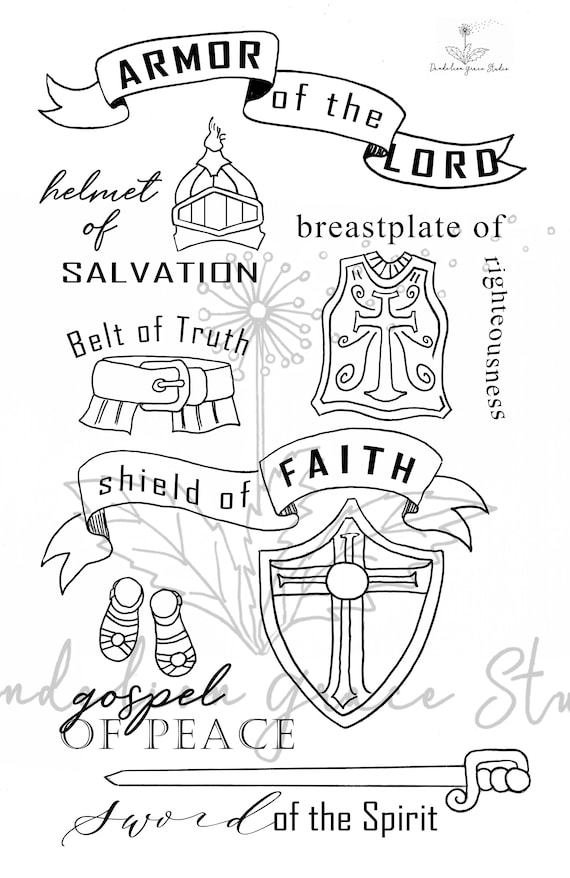 Dandelion Grace Studio
ARMOR
of the
LORD
helmet
of
SALVATION
breastplate of
righteousness
Belt of Truth
shield of
FAITH
ndelion Grace Stu
gospel
OF PEACE
sword of the Spirit